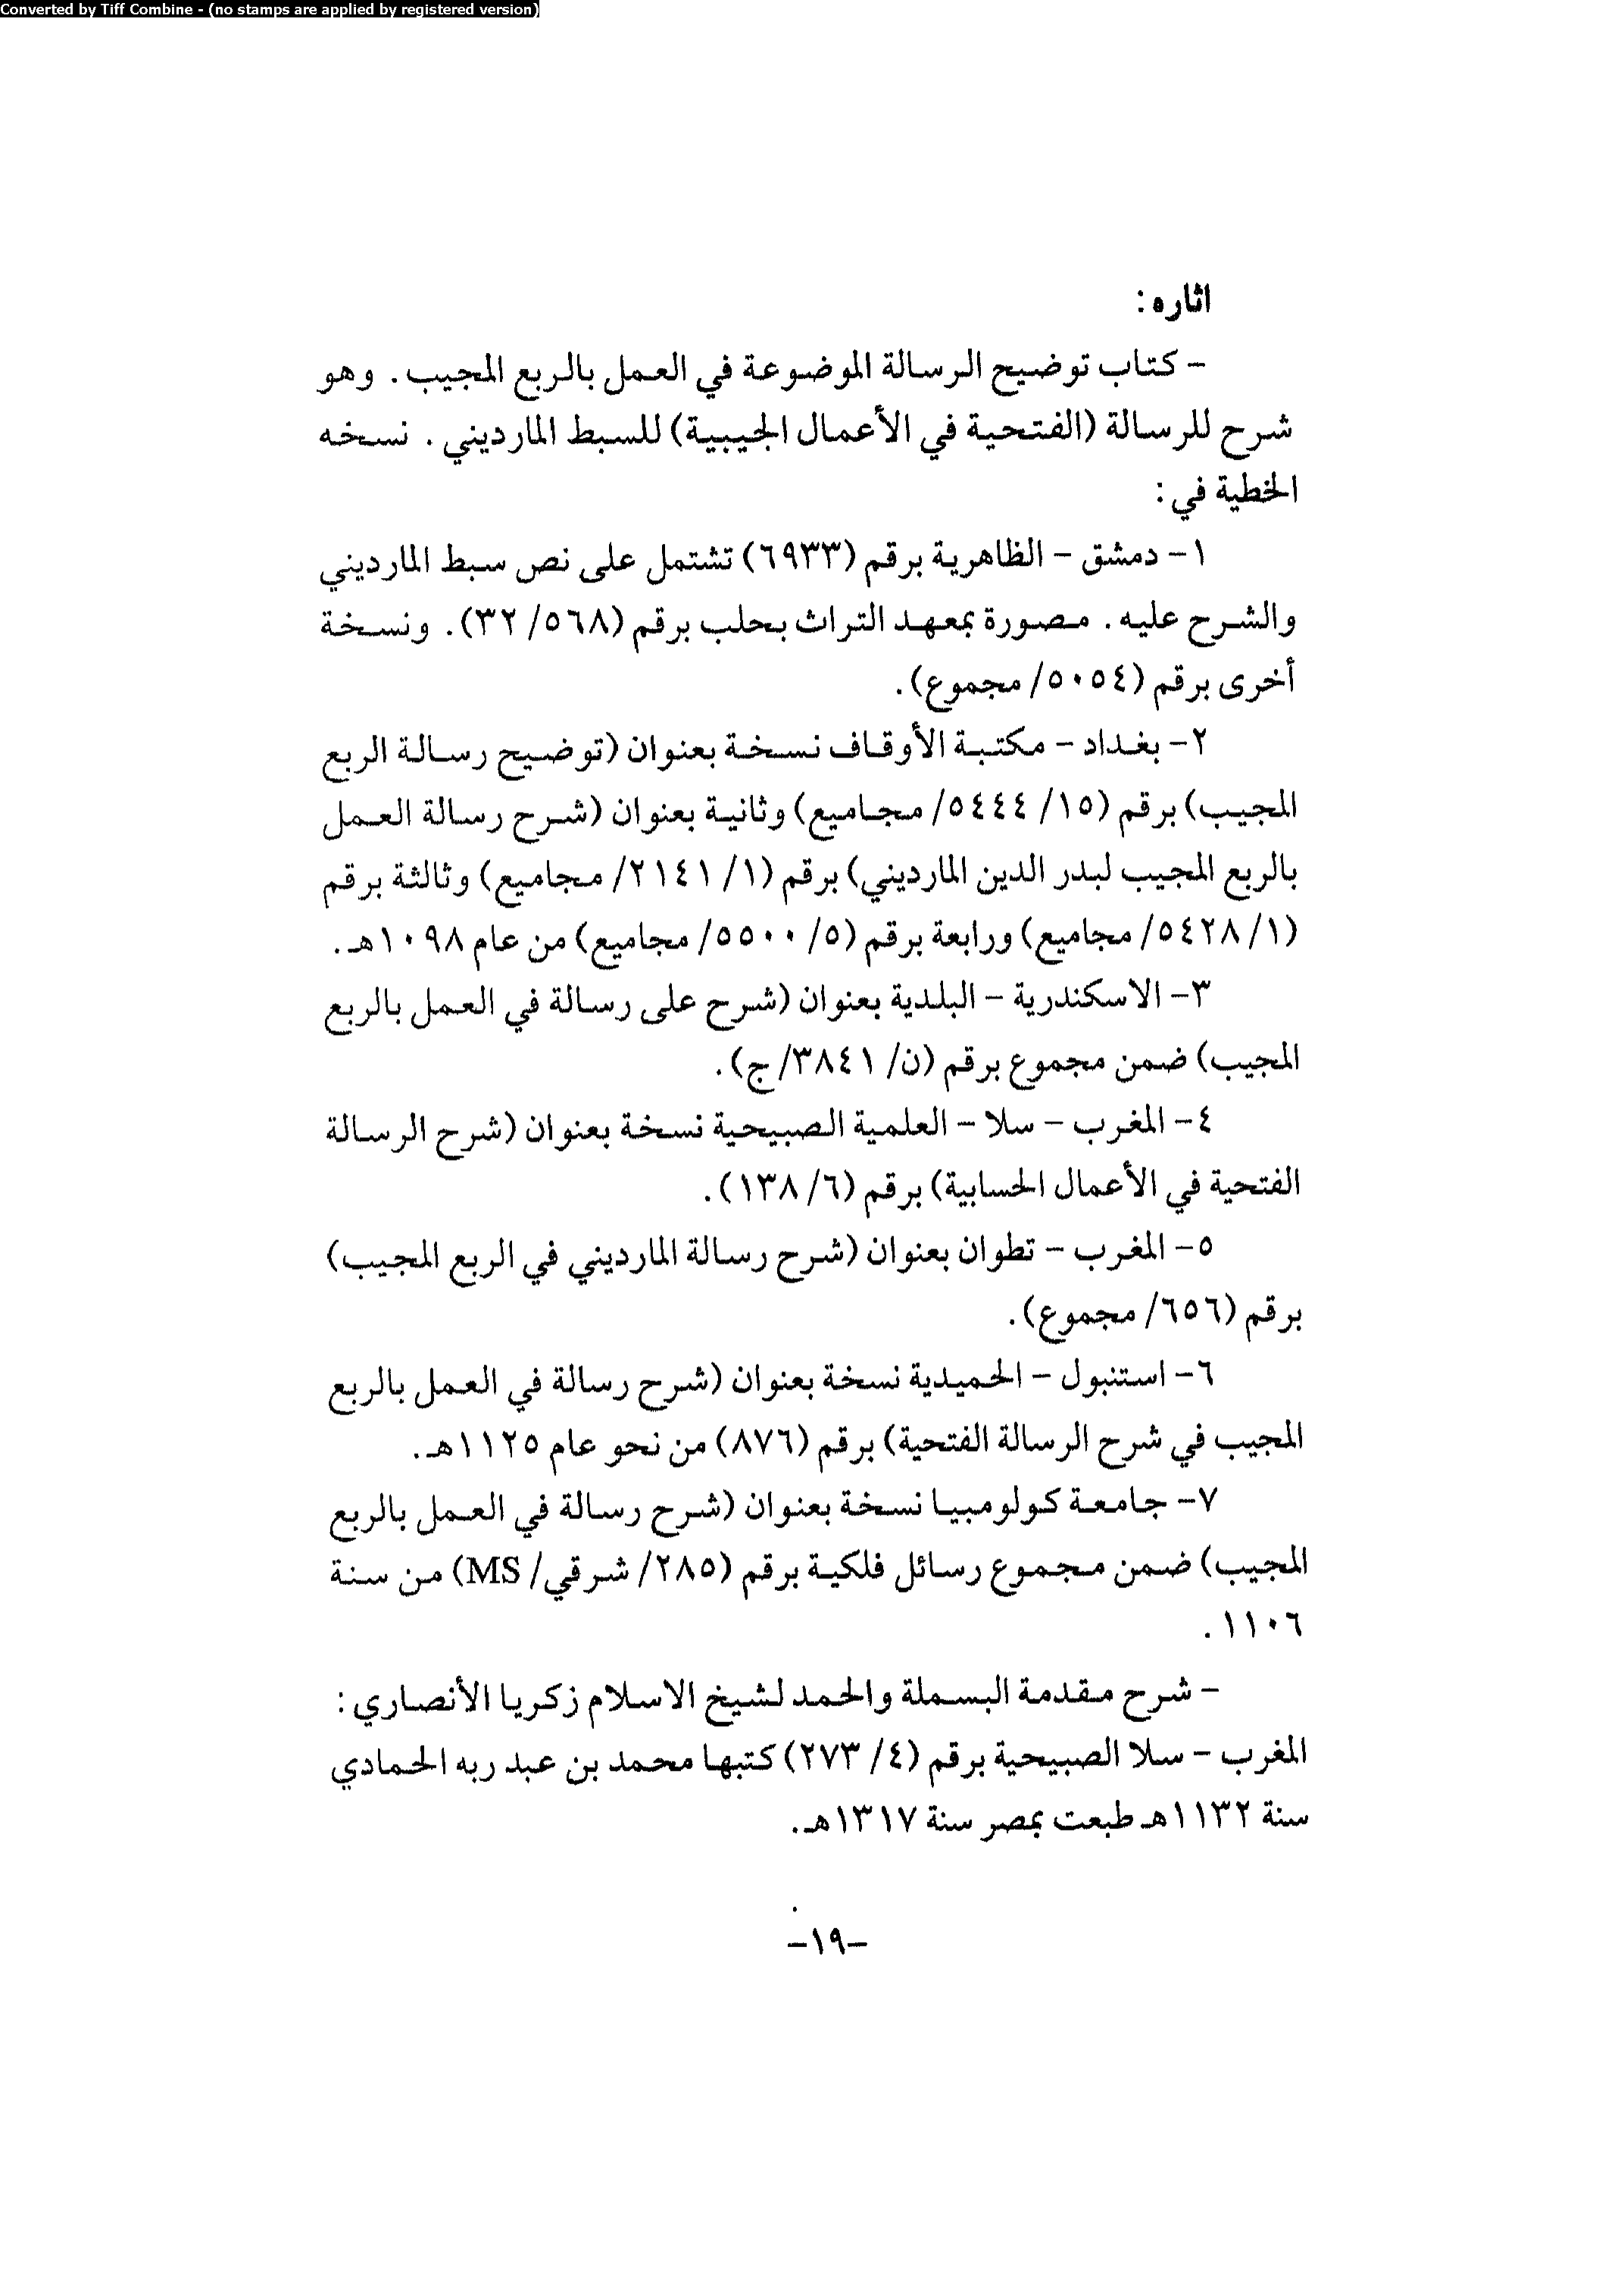 Converted by Tiff Combine - (no stamps are applied by registered version)
اثاره:
- كتاب توضيح الرسالة الموضوعة في العمل بالربع المجيب. وهو
شرح للرسالة (الفتحية في الأعمال الجيبية) للسبط المارديني. نسخه
الخطية في:
١- دمشق - الظاهرية برقم (٦٩٣٣) تشتمل على نص سبط المارديني
والشرح عليه. مصورة بمعهد التراث بحلب برقم (٥٦٨/ ٣٢). ونسخة
أخرى برقم (٥٠٥٤/ مجموع).
٢- بغداد - مكتبة الأوقاف نسخة بعنوان (توضيح رسالة الربع
المجيب) برقم (١٥/ ٥٤٤٤/ مجاميع) وثانية بعنوان (شرح رسالة العمل
بالربع المجيب لبدر الدين المارديني) برقم (١/ ٢١٤١/ مجاميع) وثالثة برقم
(١/ ٥٤٢٨/ مجاميع) ورابعة برقم (٥/ ٥٥٠٠/ مجاميع) من عام ١٠٩٨هـ.
٣- الاسكندرية - البلدية بعنوان (شرح على رسالة في العمل بالربع
المجيب) ضمن مجموع برقم (ن/ ٣٨٤١/ ج).
٤- المغرب - سلا - العلمية الصبيحية نسخة بعنوان (شرح الرسالة
الفتحية في الأعمال الحسابية) برقم (٦/ ١٣٨).
٥- المغرب - تطوان بعنوان (شرح رسالة المارديني في الربع المجيب)
برقم (٦٥٦/ مجموع).
٦- استنبول - الحميدية نسخة بعنوان (شرح رسالة في العمل بالربع
المجيب في شرح الرسالة الفتحية) برقم (٨٧٦) من نحو عام ١١٢٥هـ.
٧- جامعة كولومبيا نسخة بعنوان (شرح رسالة في العمل بالربع
المجيب) ضمن مجموع رسائل فلكية برقم (٢٨٥/ شرقي/ MS) من سنة
١١٠٦.
- شرح مقدمة البسملة والحمد لشيخ الاسلام زكريا الأنصاري:
المغرب - سلا الصبيحية برقم (٤/ ٢٧٣) كتبها محمد بن عبد ربه الحمادي
سنة ١١٣٢هـ طبعت بمصر سنة ١٣١٧هـ.
-١٩-